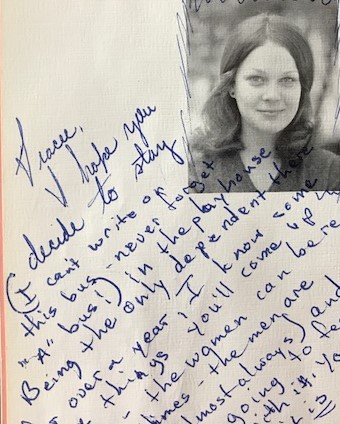 Tracee,
I hope you
decide to stay
(I can't write on
this bus - never forget
"A" bus!) in the playhouse
Being the only dependent there
over a year I know some
things you'll come up
- the women can be
times - the men are
almost always) and
going to fe
with it. Yo
it is